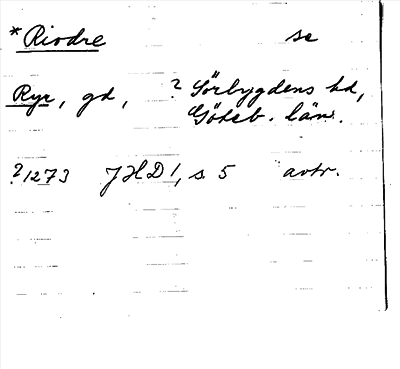 *Riodre se
Ryr, gd, ? Sörbygdens hd,
Göteb. län.
?1273 JHD 1, s. 5 avtr.